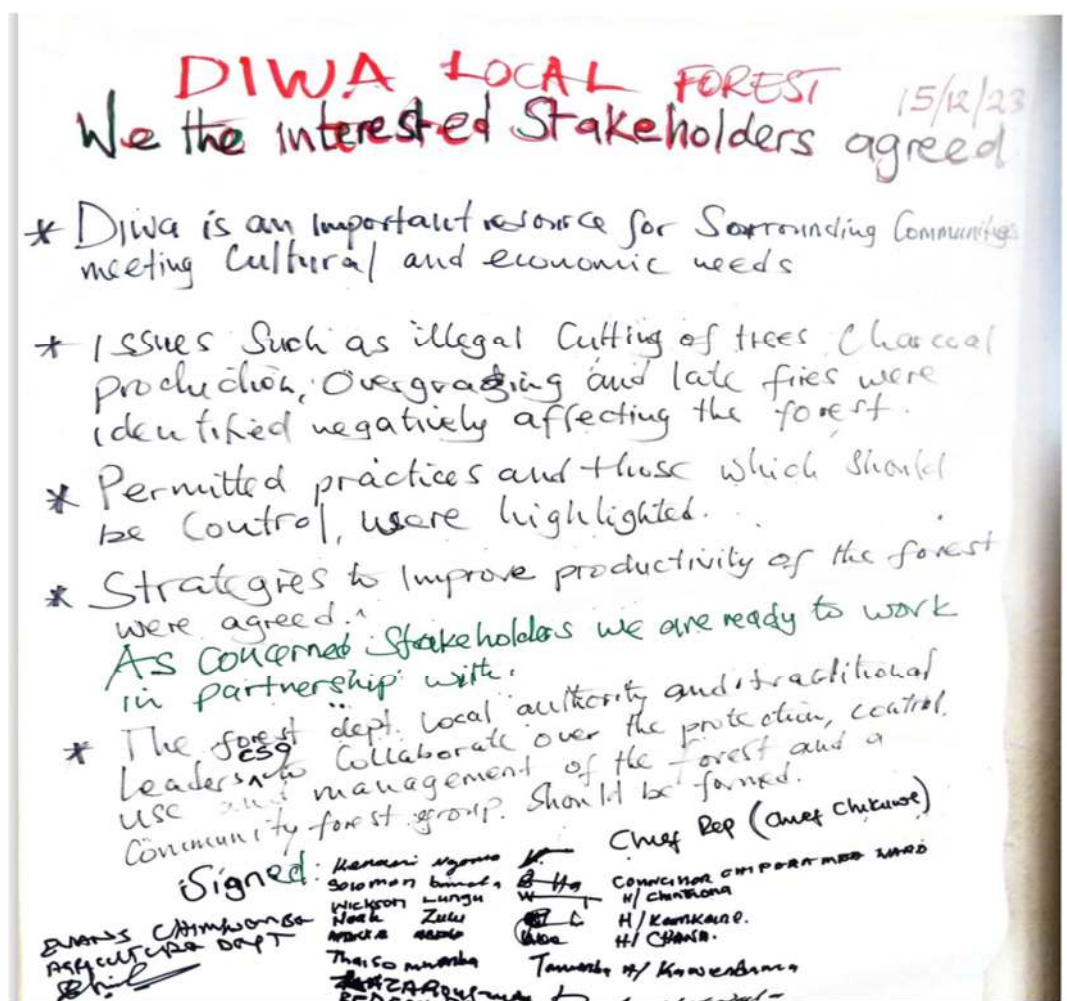 DIWA LOCAL FOREST
15/12/23
We the interested Stakeholders agreed
* Diwa is an important resource for Sorrounding Communities
meeting Cultural and economic needs
* Issues Such as illegal Cutting of trees Charcoal
production, Overgrazing and late fires were
identified negatively affecting the forest.
* Permitted practices and those which should
be Control, were highlighted.
* Strategies to Improve productivity of the forest
were agreed.
As concerned Stakeholders we are ready to work
in partnership with.
* The forest dept. Local authority and traditional
Leaders, CSO to Collaborate over the protection, control,
use and management of the forest and a
Community forest group. Should be formed.
Signed:
Chief Rep (Chief Chikuwe)
Solomon
Wickson Lungu H/ Chintiona
Noah Zulu H/ Kamkaune.
H/ CHANA.
EVANS CHIMWAMBA
AGRICULTURE DEPT